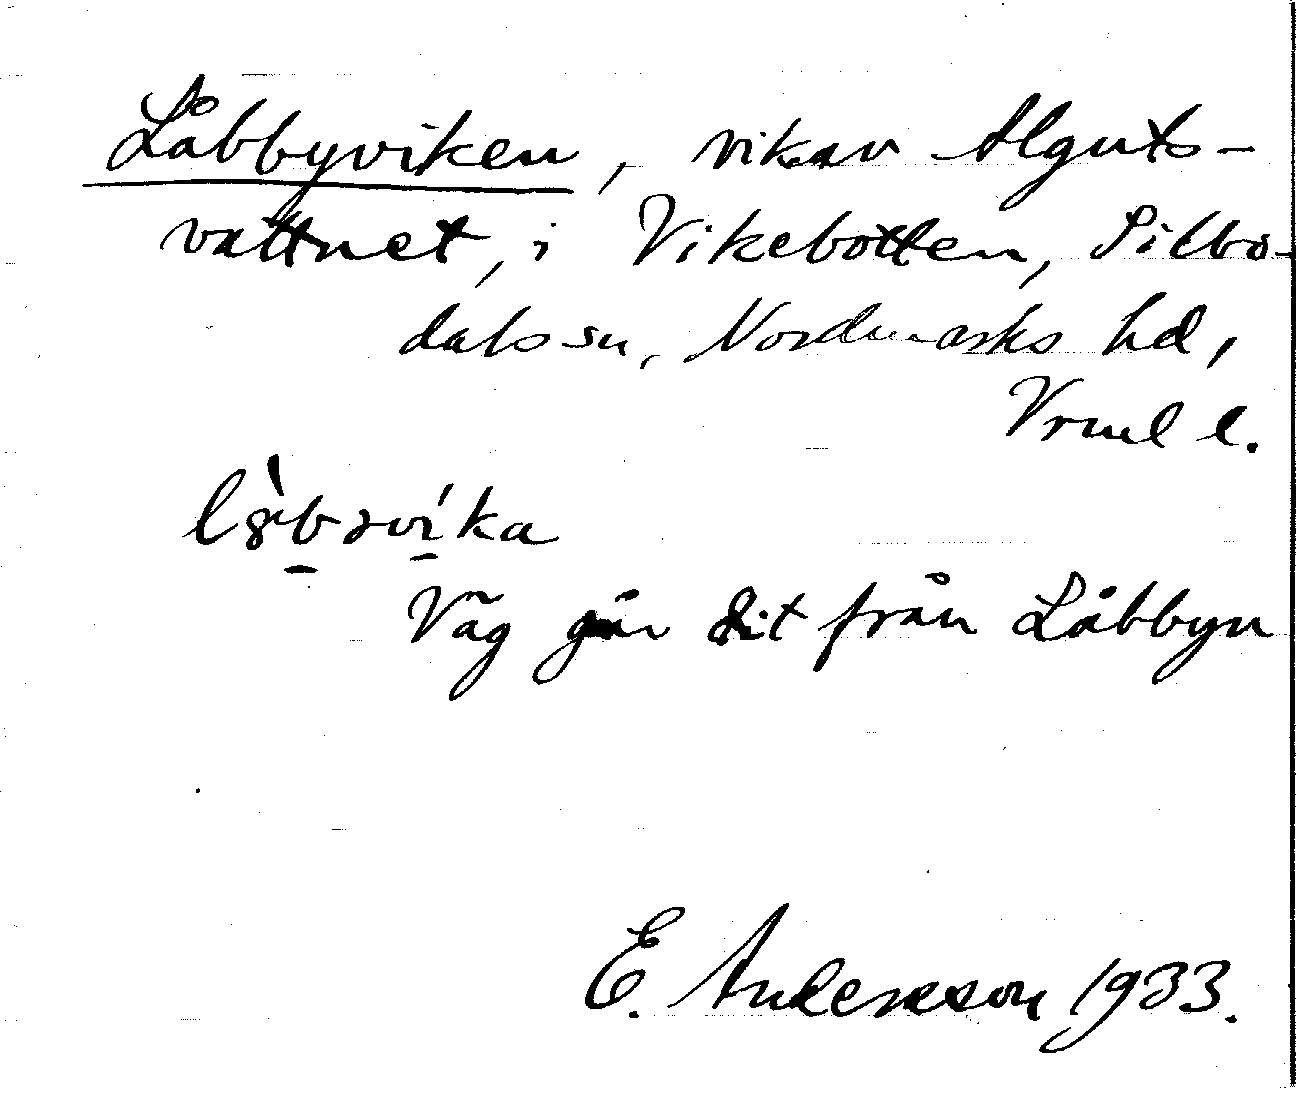 Låbbyviken, vik av Alguts-
vattnet, i Vikebotten, Silbo-
dals sn, Nordmarks hd,
Vrml l.
Väg går dit från Låbbyn
E. Andersson 1933.